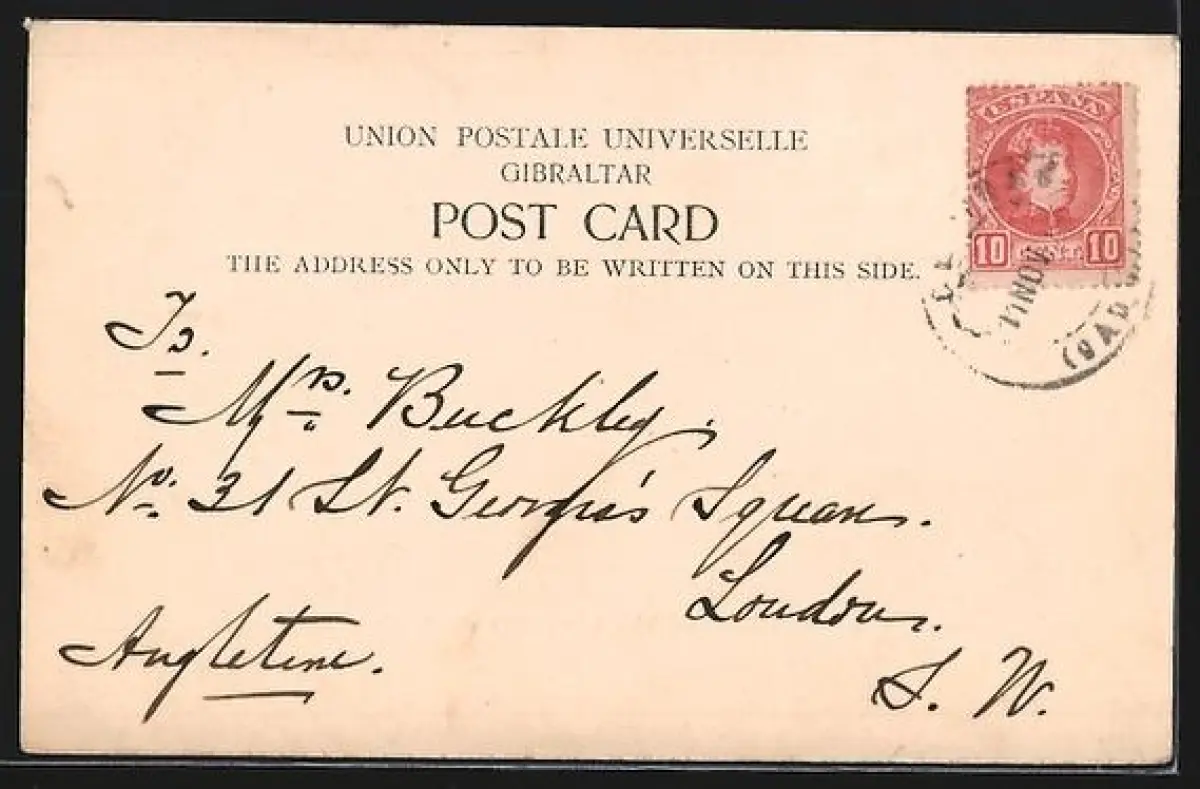 UNION POSTALE UNIVERSELLE
GIBRALTAR
POST CARD
THE ADDRESS ONLY TO BE WRITTEN ON THIS SIDE.
ESPAÑA
10 10
11 NOV
(CAD
To.
Mrs. Buckley.
No. 31 St. George's Square.
London.
S. W.
Angleterre.